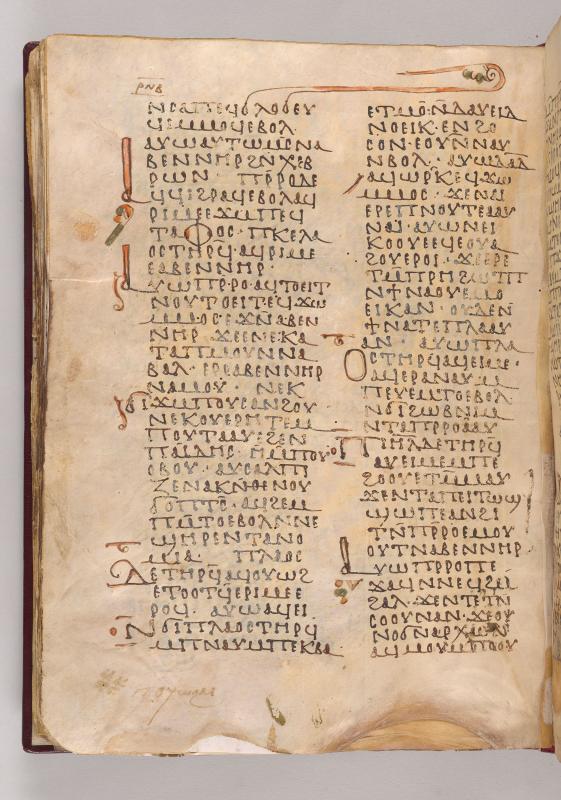 ⲣⲛⲃ
ⲛⲥⲁⲡⲉϭⲗⲟϭⲉⲩ
ϥⲓⲙⲙⲟϥⲉⲃⲟⲗ
ⲁⲩⲱⲁⲩⲧⲱⲙⲥⲛⲁ
ⲃⲉⲛⲛⲏⲣϩⲛⲭⲉⲃ
ⲣⲱⲛ· ⲡⲣⲣⲟⲇⲉ
ⲁϥϥⲓϩⲣⲁϥⲉⲃⲟⲗⲁϥ
ⲣⲓⲙⲉⲉϫⲙⲡⲉϥ
ⲧⲁⲫⲟⲥ· ⲡⲕⲉⲗⲁ
ⲟⲥⲧⲏⲣϥ̄ⲁϥⲣⲓⲙⲉ
ⲉⲁⲃⲉⲛⲛⲏⲣ·
ⲁⲩⲱⲡⲣ̄ⲣⲟⲁϥⲧⲟⲉⲓⲧ
ⲛⲟⲩⲧⲟⲉⲓⲧⲉϥϫⲱ
ⲙⲙⲟⲥⲉϫⲛ̄ⲁⲃⲉⲛ
ⲛⲏⲣ ϫⲉⲉⲛⲉⲕⲁ
ⲧⲁⲡⲙⲟⲩⲛⲛⲁ
ⲃⲁⲗ· ⲉⲣⲉⲁⲃⲉⲛⲛⲏⲣ
ⲛⲁⲙⲟⲩ· ⲛⲉⲕ
ϭⲓϫⲙⲡⲟⲩⲥⲟⲛϩⲟⲩ
ⲛⲉⲕⲟⲩⲉⲣⲏⲧⲉⲙ
ⲡⲟⲩⲧⲁⲁⲩⲉϩⲉⲛ
ⲡⲁⲓⲇⲏⲥ· ⲙⲡⲟⲩ
ⲥⲃⲟⲩ· ⲁⲩⲥⲁⲗⲡⲓ
ⲍⲉⲛⲁⲕⲛ̄ⲑⲉⲛⲟⲩ
ⲁϥϩⲉⲙ
ⲡⲙ̄ⲧⲟⲉⲃⲟⲗⲛⲛⲉ
ϣⲏⲣⲉⲛⲧⲁⲛⲟ
ⲙⲓⲁ· ⲡⲗⲁⲟⲥ
ⲇⲉⲧⲏⲣϥⲁϥⲟⲩⲱϩ
ⲉⲧⲟⲟⲧϥⲉⲣⲓⲙⲉⲉ
ⲣⲟϥ· ⲁⲩⲱⲁϥⲉⲓ
ⲛϭⲓⲡⲗⲁⲟⲥⲧⲏⲣϥ
ⲙⲡⲛⲁⲩⲙⲡⲉⲕⲃⲁ
ⲉⲧⲙⲙⲟⲛⲇⲁⲩⲉⲓⲇ
ⲛⲟⲉⲓⲕ· ⲉⲛϩⲟ
ⲥⲟⲛ·ⲉⲟⲩⲛⲛⲁⲩ
ⲛⲃⲟⲗ· ⲁⲩⲱⲇⲁⲇ
ⲁϥⲱⲣⲕⲉϥϫⲱ
ⲙⲙⲟⲥ· ϫⲉⲛⲁⲓ
ⲉⲣⲉⲡⲛⲟⲩⲧⲉⲁⲁⲩ
ⲛⲁⲓ· ⲁⲩⲱⲛⲉⲓ
ⲕⲟⲟⲩⲉⲉϥⲉⲟⲩⲁ
ϩⲟⲩⲉⲣⲟⲓ· ϫⲉⲉⲣⲉ
ⲧⲙⲡⲣⲏϩⲱⲧⲡ
ⲛϯⲛⲁⲟⲩⲉⲙⲟ
ⲉⲓⲕⲁⲛ· ⲟⲩⲇⲉⲛ̄
ϯⲛⲁⲧⲉⲡⲗⲁⲁⲩ
ⲁⲛ· ⲁⲩⲱⲡⲗⲁ
ⲟⲥⲧⲏⲣϥⲁϥⲉⲓⲙⲉ·
ⲁϥⲉⲣⲁⲛⲁⲩⲙ
ⲡⲉⲩⲉⲙⲧⲟⲉⲃⲟⲗ
ⲛϭⲓϩⲱⲃⲛⲓⲙ
ⲛⲧⲁⲡⲣⲣⲟⲁⲁⲩ
ⲡⲓⲏⲗⲇⲉⲧⲏⲣϥ
ⲁⲩⲉⲓⲙⲉⲙⲡⲉ
ϩⲟⲟⲩⲉⲧⲙⲙⲁⲩ
ϫⲉⲛⲧⲁⲡⲉⲓⲧⲱϣ
ϣⲱⲡⲉⲁⲛϩⲓ
ⲧⲛ̄ⲡⲣⲣⲟⲉⲙⲟⲩ
ⲟⲩⲧⲛⲁⲃⲉⲛⲛⲏⲣ
ⲁⲩⲱⲡⲣⲣⲟⲡⲉ
ϫⲁϥⲛⲛⲉϥϩⲙ
ϩⲁⲗ· ϫⲉⲛⲧⲉⲧⲛ
ⲥⲟⲟⲩⲛⲁⲛ· ϫⲉⲟⲩ
ⲛⲟϭⲛⲁⲣⲭⲱⲛ
ⲁϥⲙⲟⲩⲙⲡⲟⲟⲩ